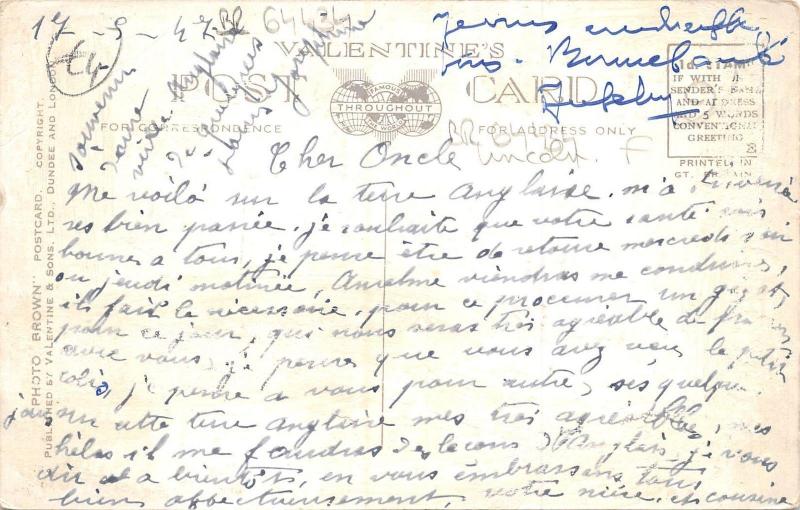 17-9-47
BR 64434
VALENTINE'S
POST CARD
FAMOUS
THROUGHOUT
THE WORLD
FOR CORRESPONDENCE
FOR ADDRESS ONLY
1d. STAMP
IF WITH IN
SENDER'S NAME
AND ADDRESS
AND 5 WORDS
CONVENTIONAL
GREETING
PRINTED IN
GT. BRITAIN
"PHOTO BROWN" POSTCARD. COPYRIGHT.
PUBLISHED BY VALENTINE & SONS. LTD., DUNDEE AND LONDON
Souvenir
d'une
ville Anglaise
Joséphine
Lincoln. F
Cher Oncle
Me voilà sur la terre Anglaise, m'a
res bien passée, je souhaite que votre santé sois
bonnes a tous, je pense être de retour mercredi soir
ou jeudi matinée, Anselme viendras me conduire,
il fait le nécessaire, pour ce procurer un
pour ce jour, qui nous seras très agréable de
avec vous, je penses que vous avez reçu le petit
colis, je pense a vous pour autre, ses quelques
jours sur cette terre anglaise mes très agréables, mes
hélas il me faudras des leçons d'Anglais, je vous
dit a bientôt, en vous embrassons tous
bien affectueusement, votre nièce, et cousine